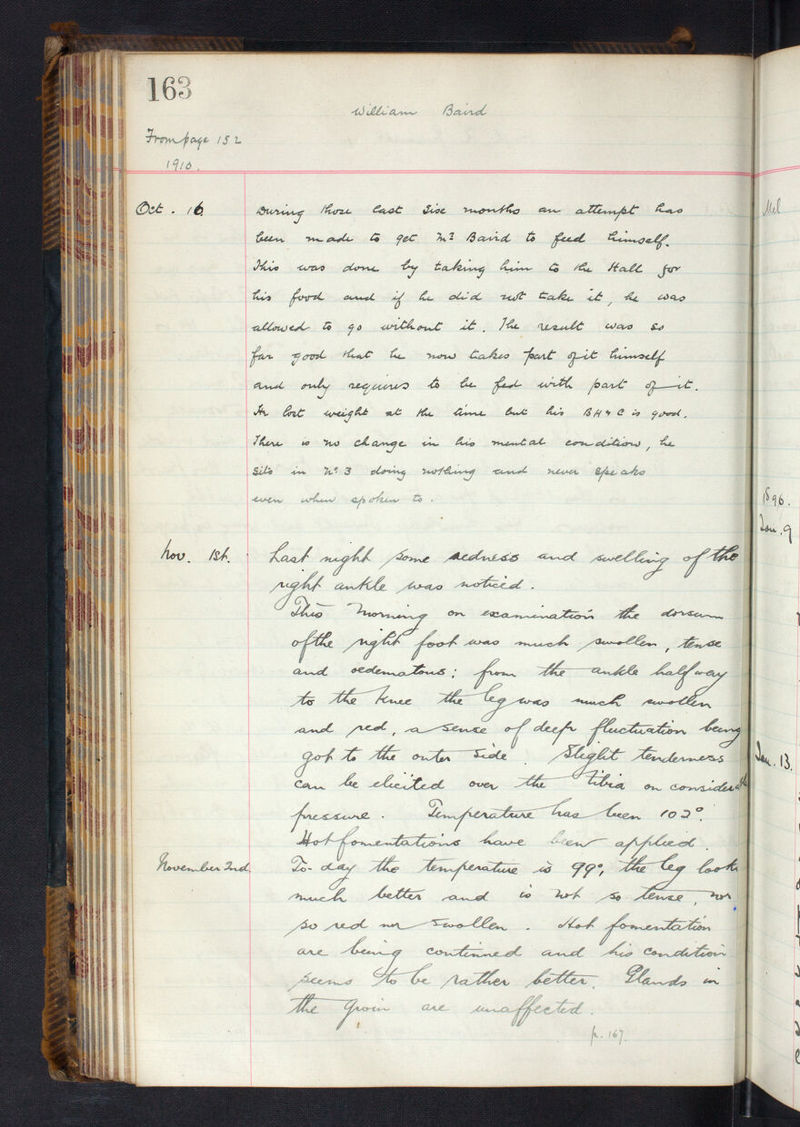 163
William Baird
From page 152
1910.
Oct. 16. During those last six months an attempt has
been made to get Mr Baird to feed himself.
This was done by taking him to the Hall for
his food and if he did not take it, he was
allowed to go without it. The result was so
far good that he now takes part of it himself
and only requires to be fed with part of it.
He lost weight at the time but his BH & C is good.
There is no change in his mental condition, he
sits in No 3 doing nothing and never speaks
even when spoken to.
Nov. 1st. Last night some redness and swelling of the
right ankle was noticed.
This morning on examination the dorsum
of the right foot was much swollen, tense
and oedematous; from the ankle halfway
to the knee the leg was much swollen
and red, a sense of deep fluctuation being
got to the outer side. Slight tenderness
can be elicited over the tibia on considerable
pressure. Temperature has been 102°.
Hot fomentations have been applied.
November 2nd. To-day the temperature is 99°, the leg looks
much better and is not so tense, nor
so red nor swollen. Hot fomentation
are being continued and his condition
seems to be rather better. Glands in
the groin are unaffected.
p. 167.
Mel
1896.
Jan. 9
Jan. 13.